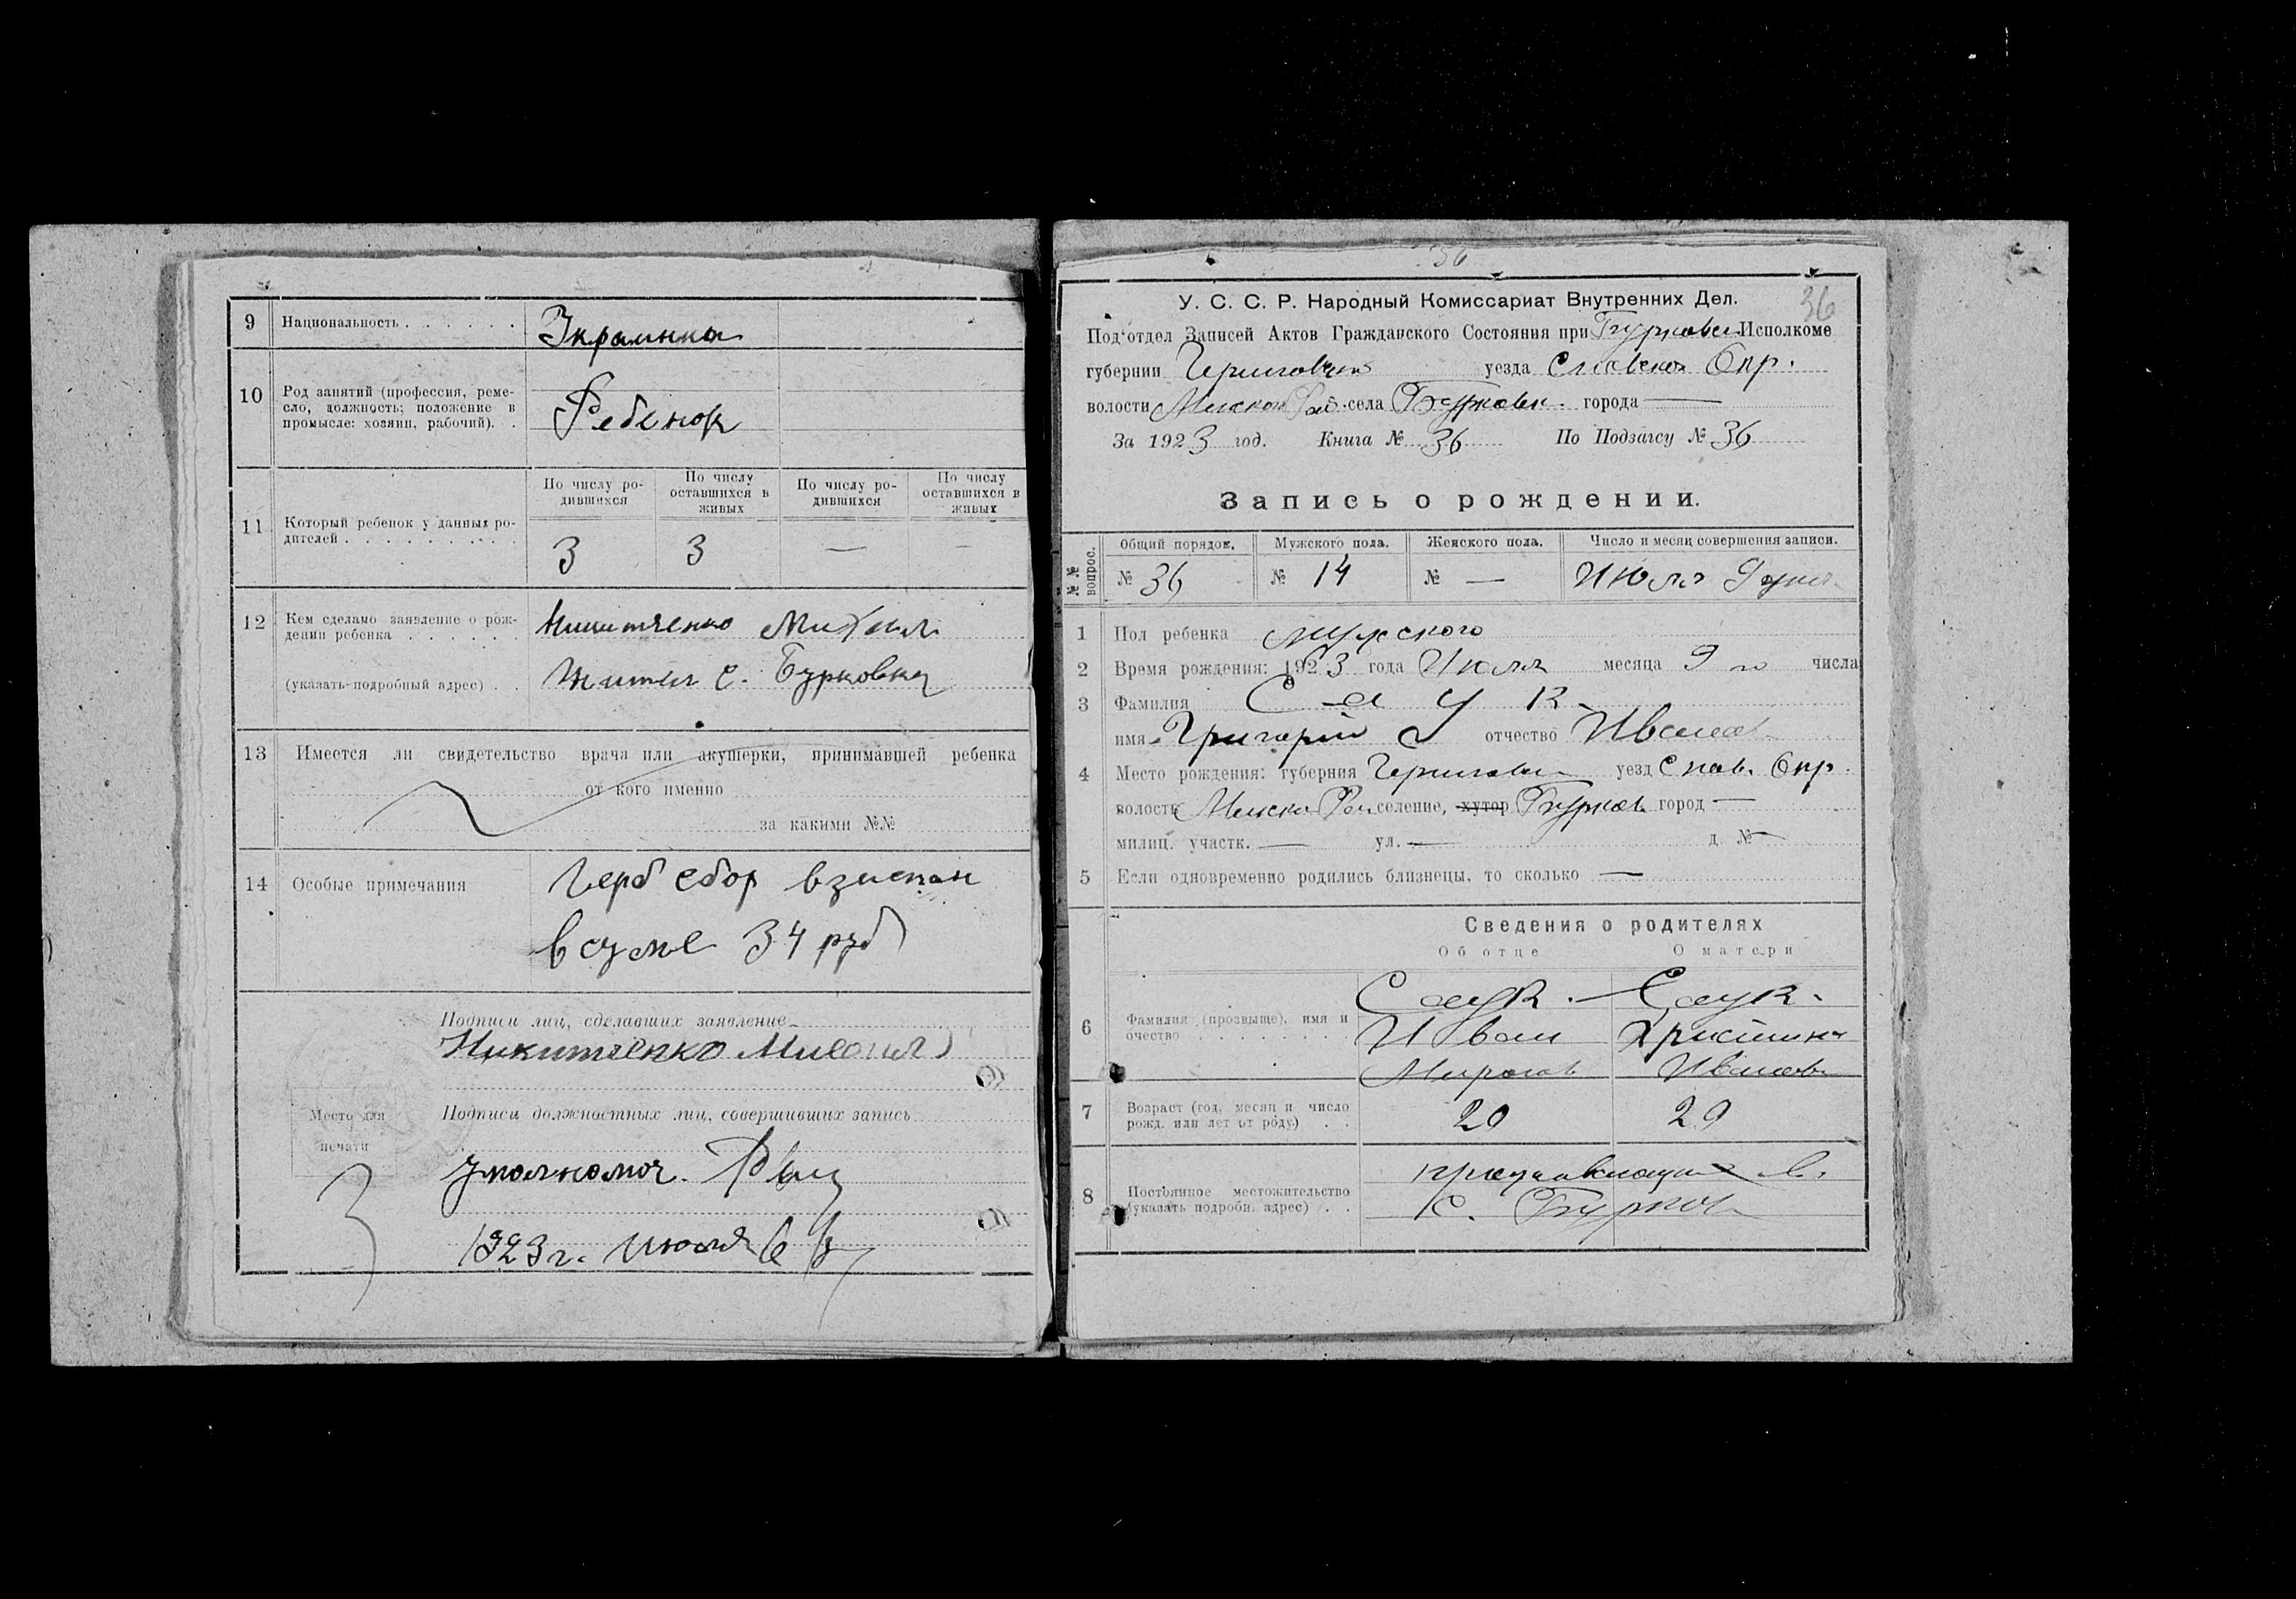 9 Национальность . . . . . . Украинка
10 Род занятий (профессия, реме-
сло, должность; положение в
промысле: хозяин, рабочий). . Ребенок
По числу ро-
дившихся
По числу
оставшихся в
живых
По числу ро-
дившихся
По числу
оставшихся в
живых
11 Который ребенок у данных ро-
дителей . . . . . . . . . . 3 3 — —
12 Кем сделано заявление о рож-
дении ребенка . . . . . . Никитченко Михаил
(указать подробный адрес) . . жител с. Бурковки
13 Имеется ли свидетельство врача или акушерки, принимавшей ребенка
от кого именно
за какими №№
14 Особые примечания Герб сбор взискан
в суме 34 руб
Подписи лиц, сделавших заявление
Никитченко
Подписи должностных лиц, совершивших запись
Место для
печати
уполномоч.
1923 г. июля
36
У. С. С. Р. Народный Комиссариат Внутренних Дел.
36
Под'отдел Записей Актов Гражданского Состояния при Бурковск Исполкоме
губернии Черниговск уезда Сновской Окр.
волости Минской Рай. села Бурковки города —
За 1923 год. Книга № 36 По Подзагсу № 36
Запись о рождении.
№№ вопрос.
Общий порядок. Мужского пола. Женского пола. Число и месяц совершения записи.
№ 36 № 14 № — Июля 9
1 Пол ребенка мужского
2 Время рождения: 1923 года Июля месяца 9 го числа
3 Фамилия Саук
имя Григорій отчество Иванов
4 Место рождения: губерния Чернигов уезд Снов. Окр.
волость Минск Рай селение, хутор Бурков город —
милиц. участк. — ул. — д. № —
5 Если одновременно родились близнецы, то сколько —
Сведения о родителях
Об отце О матери
Саук. Саук.
6 Фамилия (прозвыще), имя и
очество . . . . . . . . Иван Христина
Миронов Иванов
7 Возраст (год, месяц и число
рожд. или лет от роду) . . 20 20
8 Постоянное местожительство
(указать подробн. адрес) . .
с. Бурков